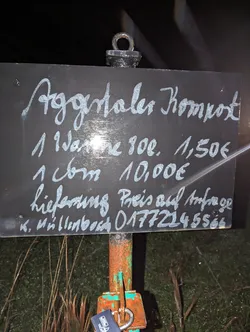 Aggertaler Kompost
1 Wanne 80l. 1,50€
1 cbm 10,00€
Lieferung Preis auf Anfrage
K. Müllenbach